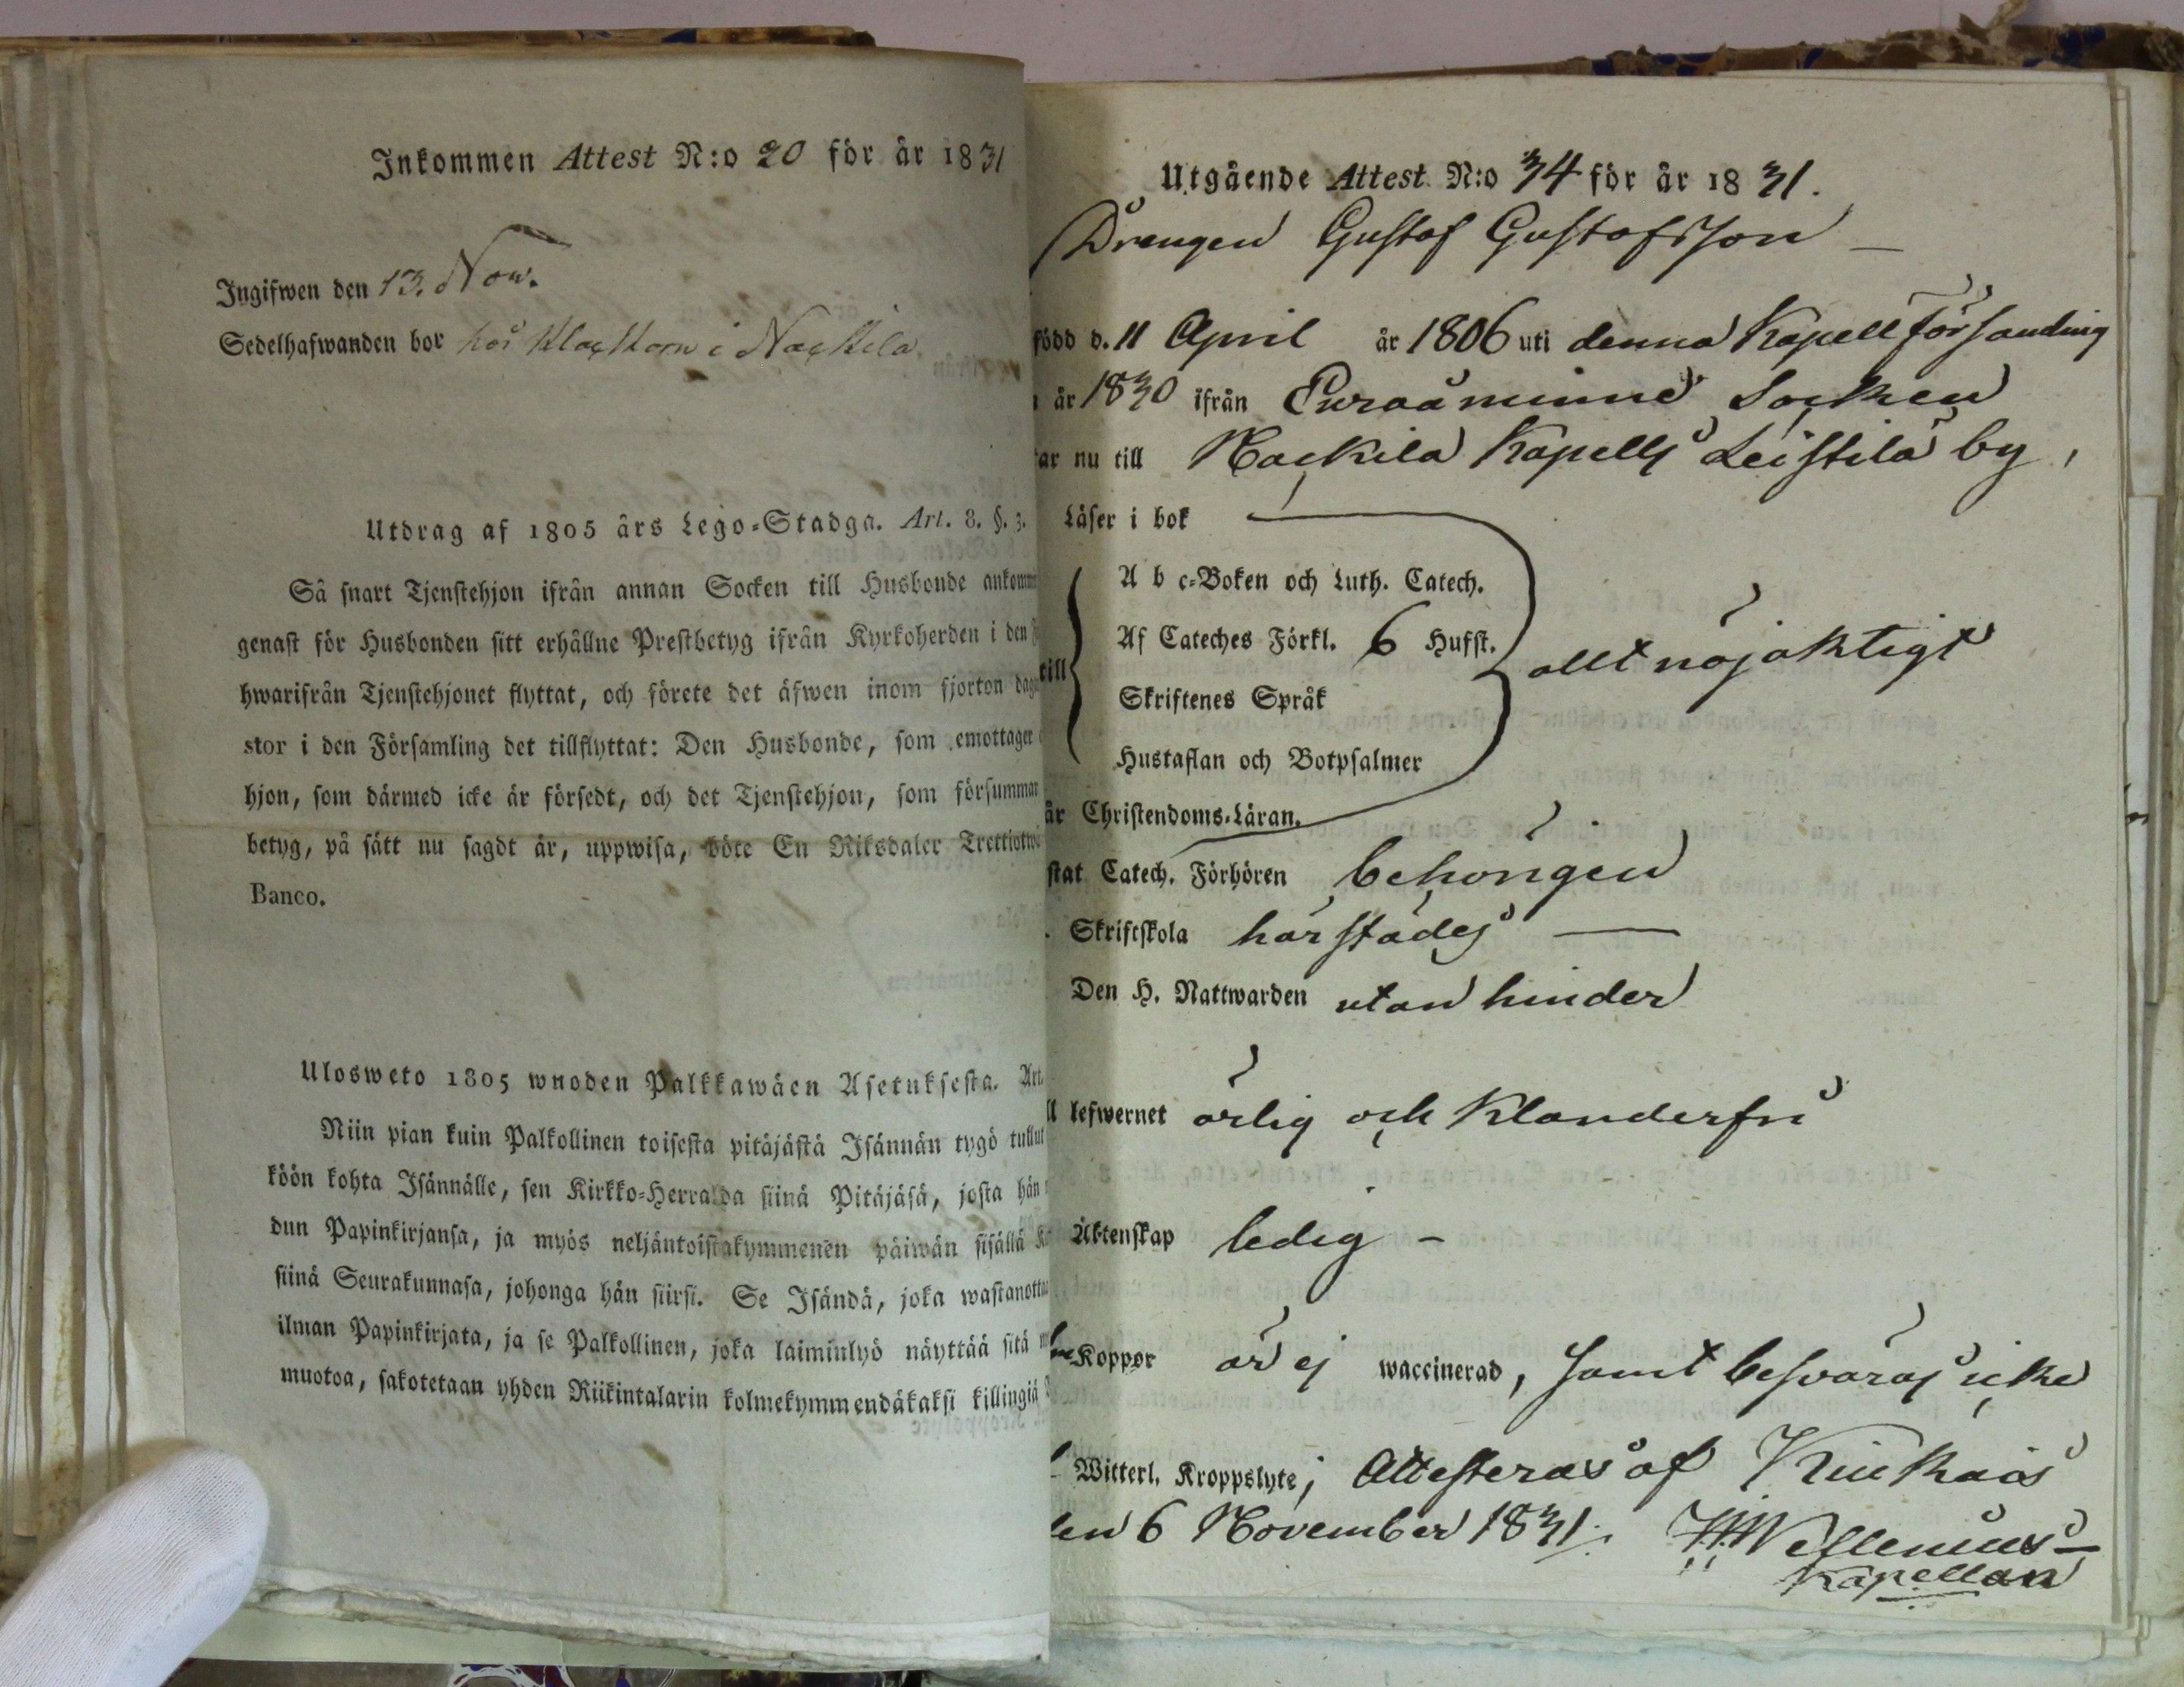 Inkommen Attest N:o 20 för år 1831
Ingifwen den 13. Now.
Sedelhafwanden bor hos Klockorn i Nackila
Utdrag af 1805 års Lego-Stadga. Art. 8. §. 3.
Så snart Tjenstehjon ifrån annan Socken till Husbonde ankomm
genast för Husbonden sitt erhållne Prestbetyg ifrån Kyrkoherden i den
hwarifrån Tjenstehjonet flyttat, och förete det äfwen inom fjorton dag
stor i den Församling det tillflyttat: Den Husbonde, som emottager
hjon, som därmed icke är försedt, och det Tjenstehjon, som försummar
betyg, på sätt nu sagdt är, uppwisa, böte En Riksdaler Trettiotw
Banco.
Ulosweto 1805 wuoden Palkkawäen Asetuksesta. Art.
Niin pian kuin Palkollinen toisesta pitäjästä Isännän tygö tullut
köön kohta Isännälle, sen Kirkko-Herralda siinä Pitäjäsä, josta hän
dun Papinkirjansa, ja myös neljäntoistakymmenen päiwän sisällä
siinä Seurakunnasa, johonga hän siirsi. Se Isändä, joka wastanotta
ilman Papinkirjata, ja se Palkollinen, joka laiminlyö näyttää sitä
muotoa, sakotetaan yhden Riikintalarin kolmekymmendäkaksi killingiä
Utgående Attest N:o 34 för år 1831.
Drengen Gustaf Gustafsson
född d. 11 April år 1806 uti denna Kapell församling
år 1830 ifrån Euraåminne Socken
ar nu till Nackila Kapells Leistilä by,
Läser i bok
A b c-Boken och Luth. Catech.
Af Cateches Förkl. 6 Hufst.
till
allt nöjaktigt
Skriftenes Språk
Hustaflan och Botpsalmer
är Christendoms-Läran.
stat Catech. Förhören behörigen
Skriftskola härstädes
Den H. Nattwarden utan hinder
ll lefwernet ärlig och Klanderfri
Äktenskap ledig -
Koppor är ej waccinerad, samt besväras icke
Witterl. Kroppslyte; Attesteras af Kiukais
den 6 November 1831.
Kapellan